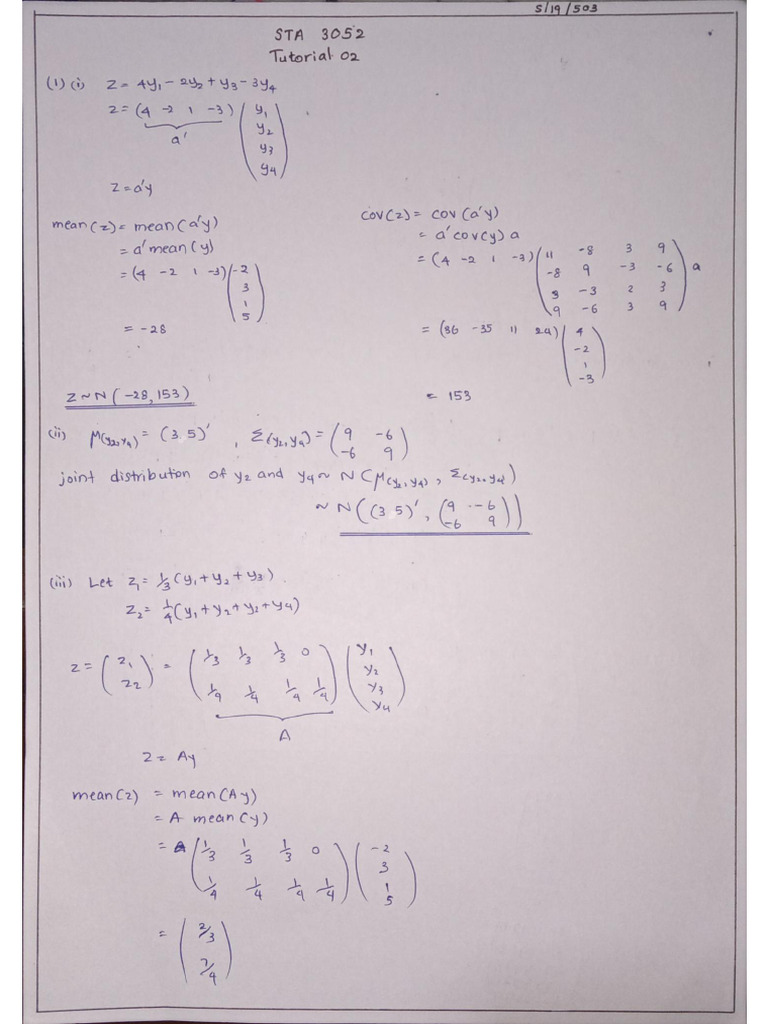 S/19/503
STA 3052
Tutorial 02
(1) (i) Z = 4y₁ - 2y₂ + y₃ - 3y₄
Z = (4 -2 1 -3) (y₁
y₂
y₃
y₄)
a'
Z = a'y
mean(z) = mean(a'y)
= a' mean(y)
= (4 -2 1 -3) (-2
3
1
5)
= -28
Z ~ N(-28, 153)
cov(z) = cov(a'y)
= a' cov(y) a
= (4 -2 1 -3) (11 -8 3 9
-8 9 -3 -6
3 -3 2 3
9 -6 3 9) a
= (36 -35 11 24) (4
-2
1
-3)
= 153
(ii) μ(y₂,y₄) = (3 5)' , Σ(y₂,y₄) = (9 -6
-6 9)
joint distribution of y₂ and y₄ ~ N(μ(y₂,y₄), Σ(y₂,y₄))
~ N((3 5)', (9 -6
-6 9))
(iii) Let Z₁ = 1/3 (y₁ + y₂ + y₃)
Z₂ = 1/4 (y₁ + y₂ + y₂ + y₄)
Z = (Z₁
Z₂) = (1/3 1/3 1/3 0
1/4 1/4 1/4 1/4) (y₁
y₂
y₃
y₄)
A
Z = Ay
mean(z) = mean(Ay)
= A mean(y)
= (1/3 1/3 1/3 0
1/4 1/4 1/4 1/4) (-2
3
1
5)
= (2/3
7/4)